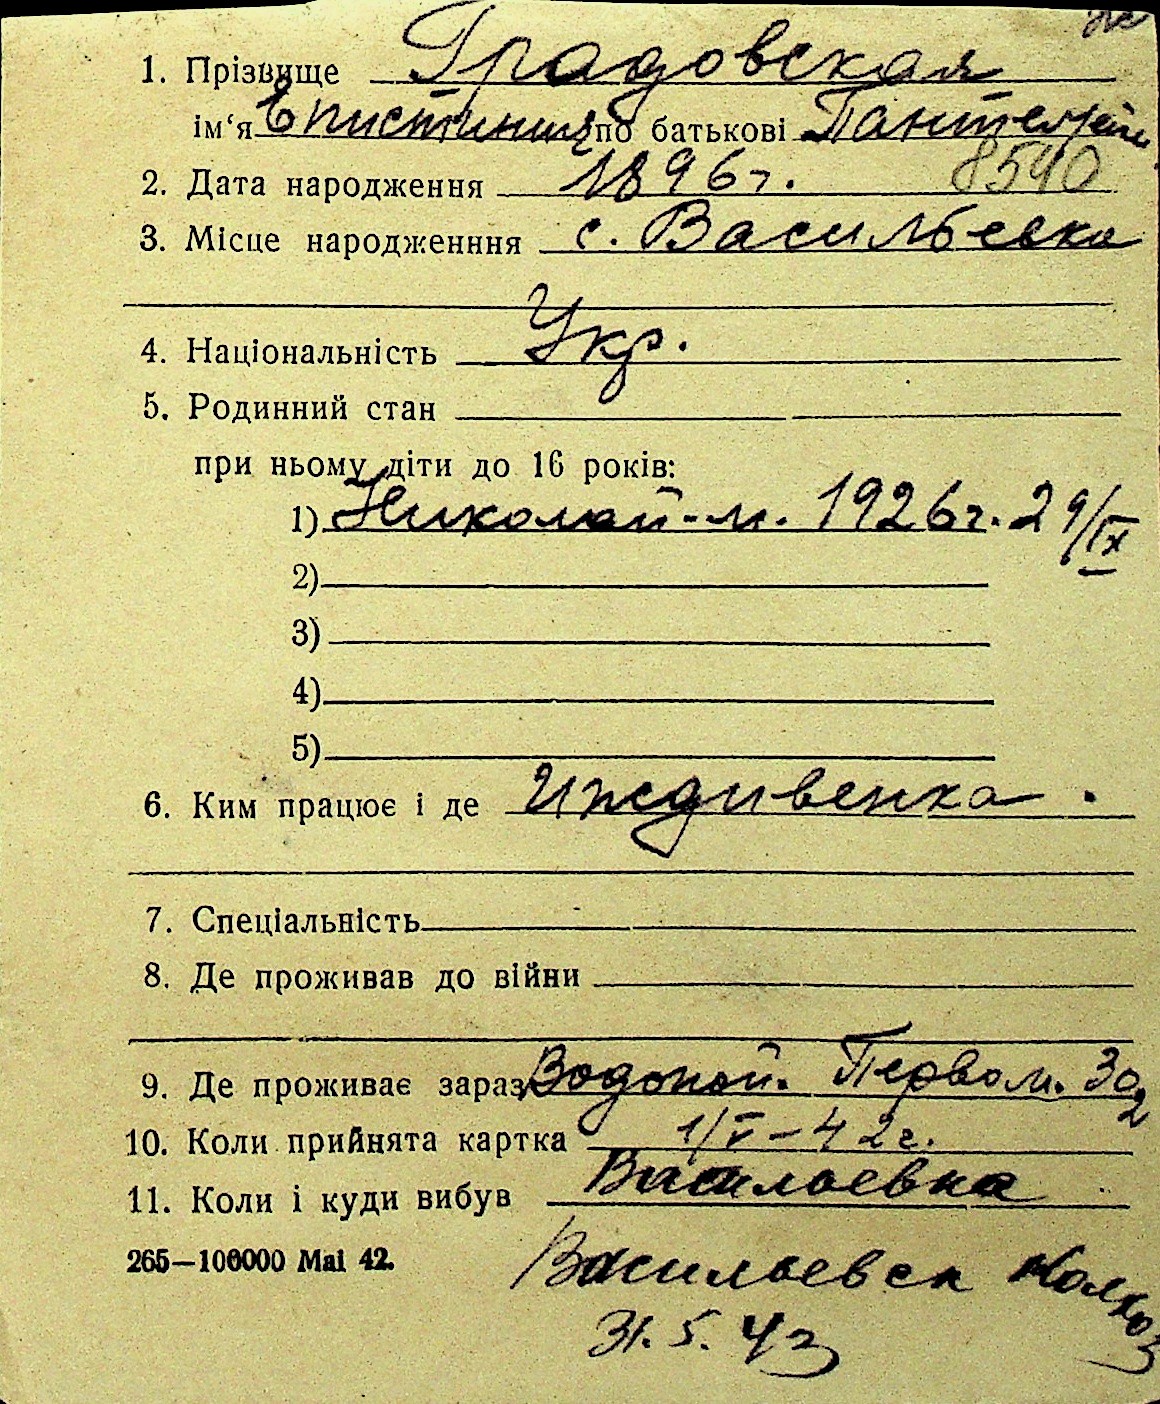 1. Прізвище Градовская
ім‘я Епистиния по батькові Пантелейм.
2. Дата народження 1896 г. 8590
3. Місце народженння с. Васильевка
4. Національність Укр.
5. Родинний стан
при ньому діти до 16 років:
1) Николай - м. 1926 г. 29/IX
2)
3)
4)
5)
6. Ким працює і де Иждивенка.
7. Спеціальність
8. Де проживав до війни
9. Де проживає зараз Водопой. Первом. 30
10. Коли прийнята картка 1/V – 42 г.
11. Коли і куди вибув Васильевка
265—100000 Маі 42.
Васильевск колхоз
31.5.43